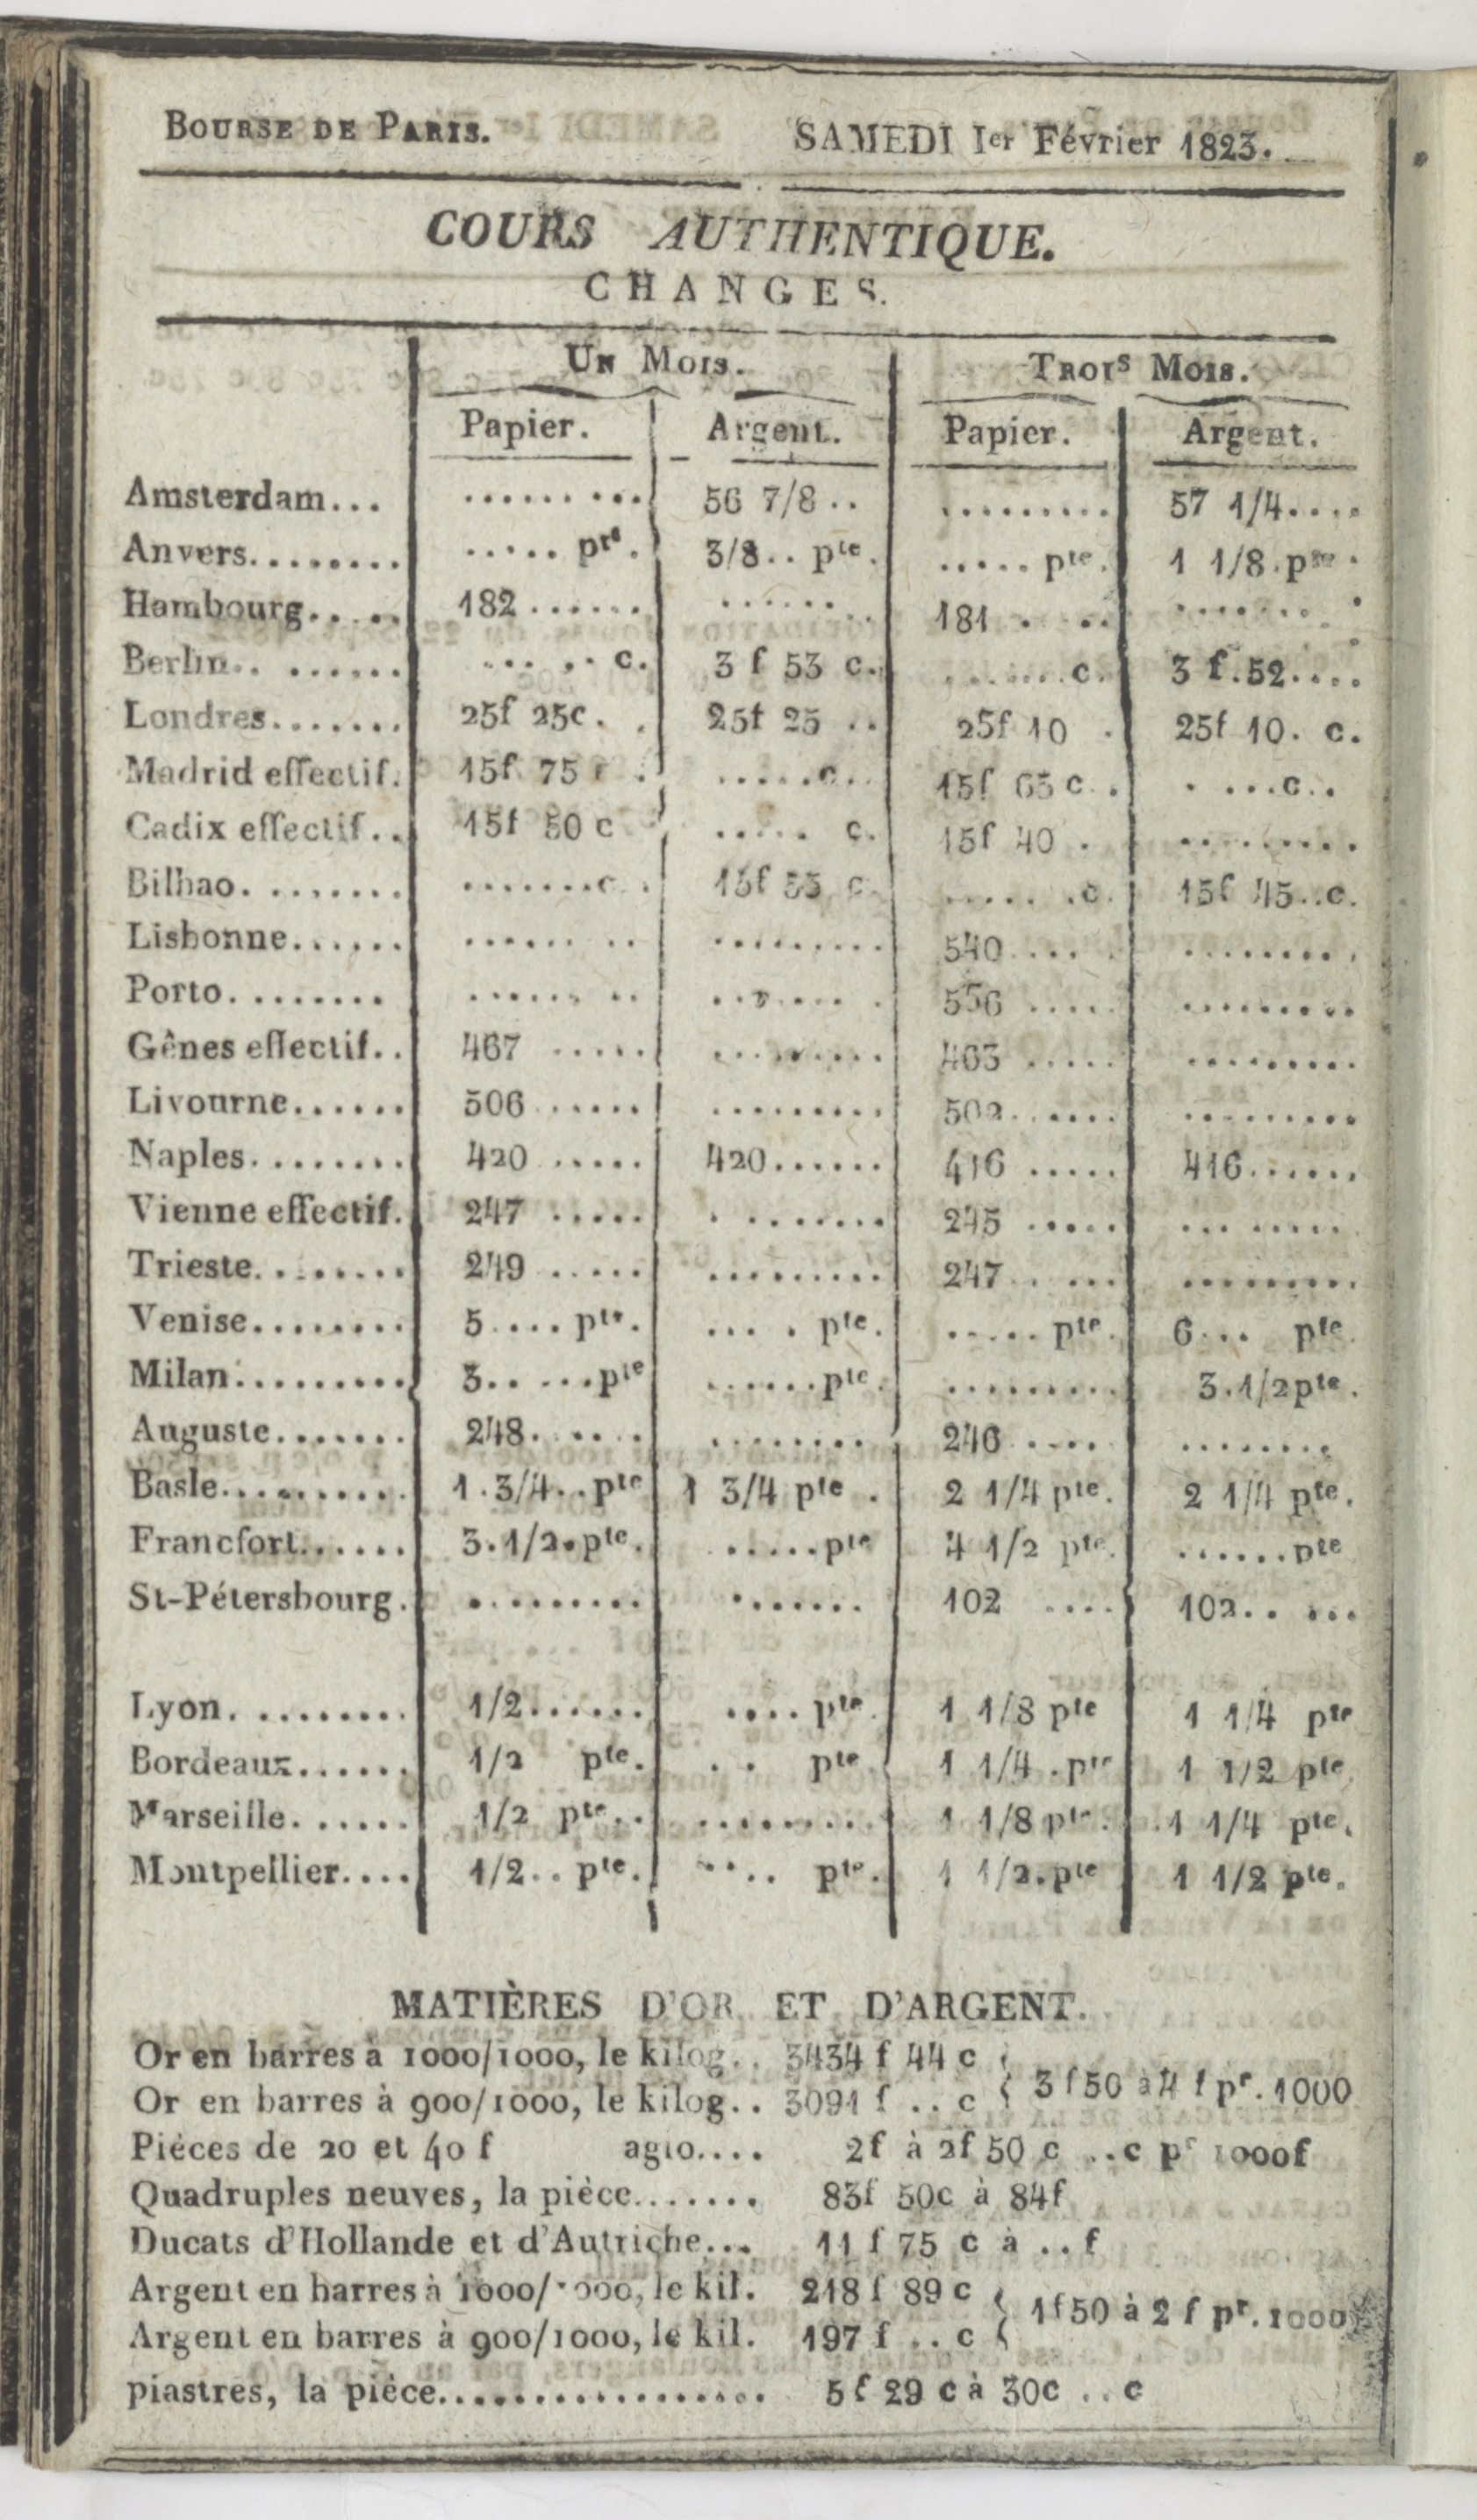 BOURSE DE PARIS. SAMEDI Ier Février 1823.
COURS AUTHENTIQUE.
CHANGES.
UN MOIS. TROIS MOIS.
Papier. Argent. Papier. Argent.
Amsterdam... ......... 56 7/8.. ......... 57 1/4....
Anvers........ ..... pte. 3/8.. pte. ..... pte. 1 1/8.pte.
Hambourg..... 182...... ........ 181..... ........
Berlin........ ..... c. 3 f 53 c. .......c. 3 f.52....
Londres....... 25f 25c.. 25f 25 .. 25f 10 . 25f 10. c.
Madrid effectif. 15f 75 .....c.. 15f 65 c.. ....c..
Cadix effectif.. 15f 50 c ..... c. 15f 40 . .........
Bilbao........ .......c.. 15f 55 c. ...... .c. 15f 45..c.
Lisbonne...... ........ ......... 540..... .........
Porto......... ........ ......... 536 ..... .........
Gênes effectif.. 467 ..... ......... 463 ..... .........
Livourne...... 506...... ......... 502...... .........
Naples........ 420 ..... 420...... 416 ..... 416......
Vienne effectif. 247 ..... ......... 245 ..... .........
Trieste........ 249 ..... ......... 247..... .........
Venise........ 5.... pte. .... pte. ..... pte. 6... pte.
Milan......... 3.. ...pte ......pte. ......... 3.1/2pte.
Auguste....... 248...... ........ 246 .... ........
Basle.......... 1.3/4..pte 1 3/4 pte . 2 1/4 pte. 2 1/4 pte.
Francfort...... 3.1/2.pte. .....pte 4 1/2 pte. ......pte
St-Pétersbourg. ......... ....... 102 .... 102.. ...
Lyon. ........ 1/2...... .... pte. 1 1/8 pte 1 1/4 pte
Bordeaux...... 1/2 pte. .. pte. 1 1/4 .pte 1 1/2 pte.
Marseille...... 1/2 pte.. ......... 1 1/8 pte. 1 1/4 pte.
Montpellier.... 1/2.. pte. .... pte. 1 1/2.pte 1 1/2 pte.
MATIÈRES D'OR ET D'ARGENT.
Or en barres à 1000/1000, le kilog.. 3434 f 44 c
3 f 50 à 4 f pr. 1000
Or en barres à 900/1000, le kilog.. 3091 f .. c
Pièces de 20 et 40 f agio.... 2f à 2f 50 c ..c pr 1000f
Quadruples neuves, la pièce....... 83f 50c à 84f
Ducats d'Hollande et d'Autriche... 11 f 75 c à .. f
Argent en barres à 1000/1000, le kil. 218 f 89 c
1 f 50 à 2 f pr. 1000
Argent en barres à 900/1000, le kil. 197 f .. c
piastres, la pièce................. 5 f 29 c à 30c ..c